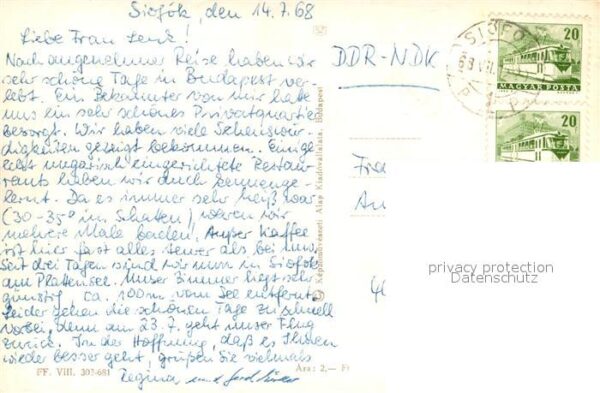 Siofók, den 14.7.68
Liebe Frau Lenk!
Nach angenehmer Reise haben wir
sehr schöne Tage in Budapest ver-
lebt. Ein Bekannter von mir habe
uns ein sehr schönes Privatquartier
besorgt. Wir haben viele Sehenswür-
digkeiten gezeigt bekommen. Einge
echt ungarisch eingerichtete Restau-
rants haben wir auch kennenge-
lernt. Da es immer sehr heiß war
(30-35° im Schatten) waren wir
mehrere Male baden. Außer Kaffee
ist hier fast alles teurer als bei uns.
Seit drei Tagen sind wir nun in Siofók
am Plattensee. Unser Zimmer liegt sehr
günstig, ca. 100 m vom See entfernt.
Leider gehen die schönen Tage zu schnell
vorbei, denn am 23.7. geht unser Flug
zurück. In der Hoffnung, daß es Ihnen
wieder besser geht, grüßen Sie vielmals
Regina und
FF. VIII. 307-681
Ára: 2.— F
Képzőművészeti Alap Kiadóvállalata, Budapest
DDR-NDK
SIÓFO
68 VII.
20
MAGYAR POSTA
20
Fra
An
40
privacy protection
Datenschutz